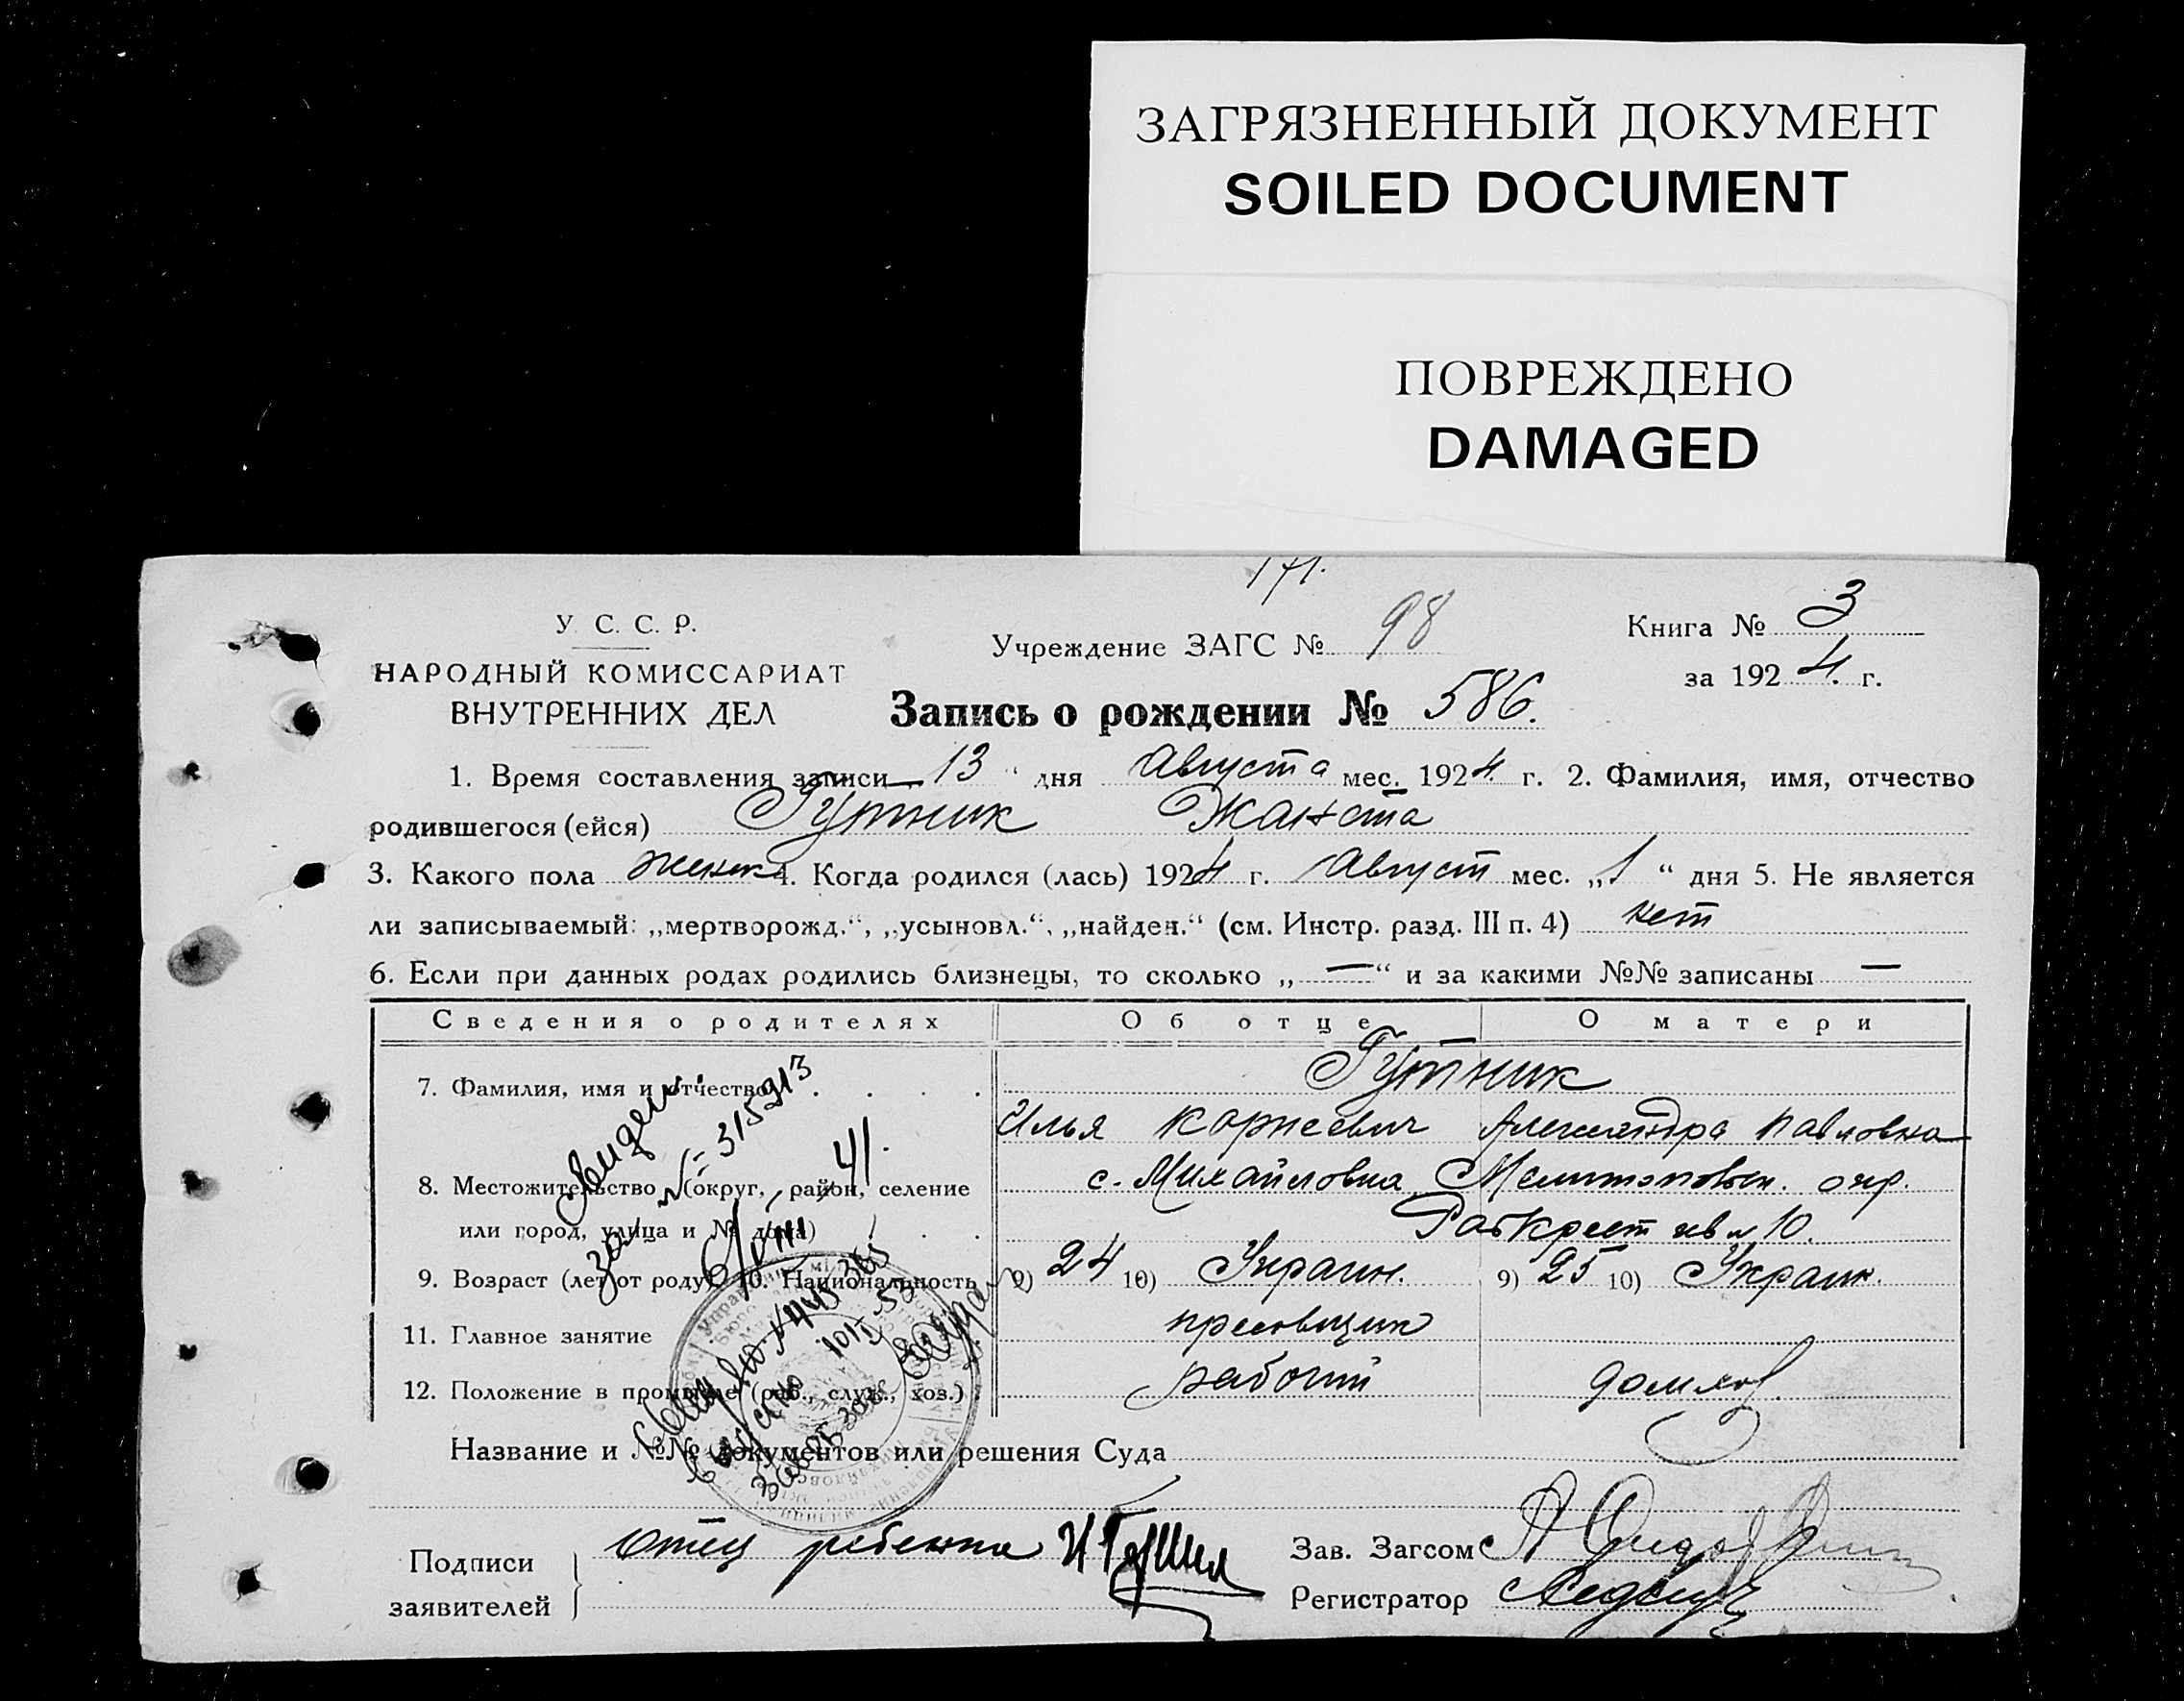 ЗАГРЯЗНЕННЫЙ ДОКУМЕНТ
SOILED DOCUMENT
ПОВРЕЖДЕНО
DAMAGED
171.
У. С. С. Р.
НАРОДНЫЙ КОМИССАРИАТ
ВНУТРЕННИХ ДЕЛ
Учреждение ЗАГС № 98
Книга № 3
за 1924 г.
Запись о рождении № 586.
1. Время составления записи 13 “ дня Августа мес. 1924 г. 2. Фамилия, имя, отчество
родившегося (ейся) Гутник Жанета
3. Какого пола женск 4. Когда родился (лась) 1924 г. Август мес. „1 “ дня 5. Не является
ли записываемый: „мертворожд.“, „усыновл.“, „найден.“ (см. Инстр. разд. III п. 4) нет
6. Если при данных родах родились близнецы, то сколько „—“ и за какими №№ записаны —
Сведения о родителях Об отце О матери
7. Фамилия, имя и отчество . . . . Гутник
Илья Корнеевич Александра Павловна
8. Местожительство (округ, район, селение с. Михайловка Мелитопольск. окр.
или город, улица и № дома) . . 10.
9. Возраст (лет от роду) 10. Национальность 9) 24 10) Украин. 9) 25 10) Украин.
11. Главное занятие прессовщик
12. Положение в промысле (раб., служ., хоз.) рабочий домхоз.
Название и №№ документов или решения Суда
№ 315913
41.
Подписи
заявителей
Отец ребенка И Гутник
Зав. Загсом
Регистратор